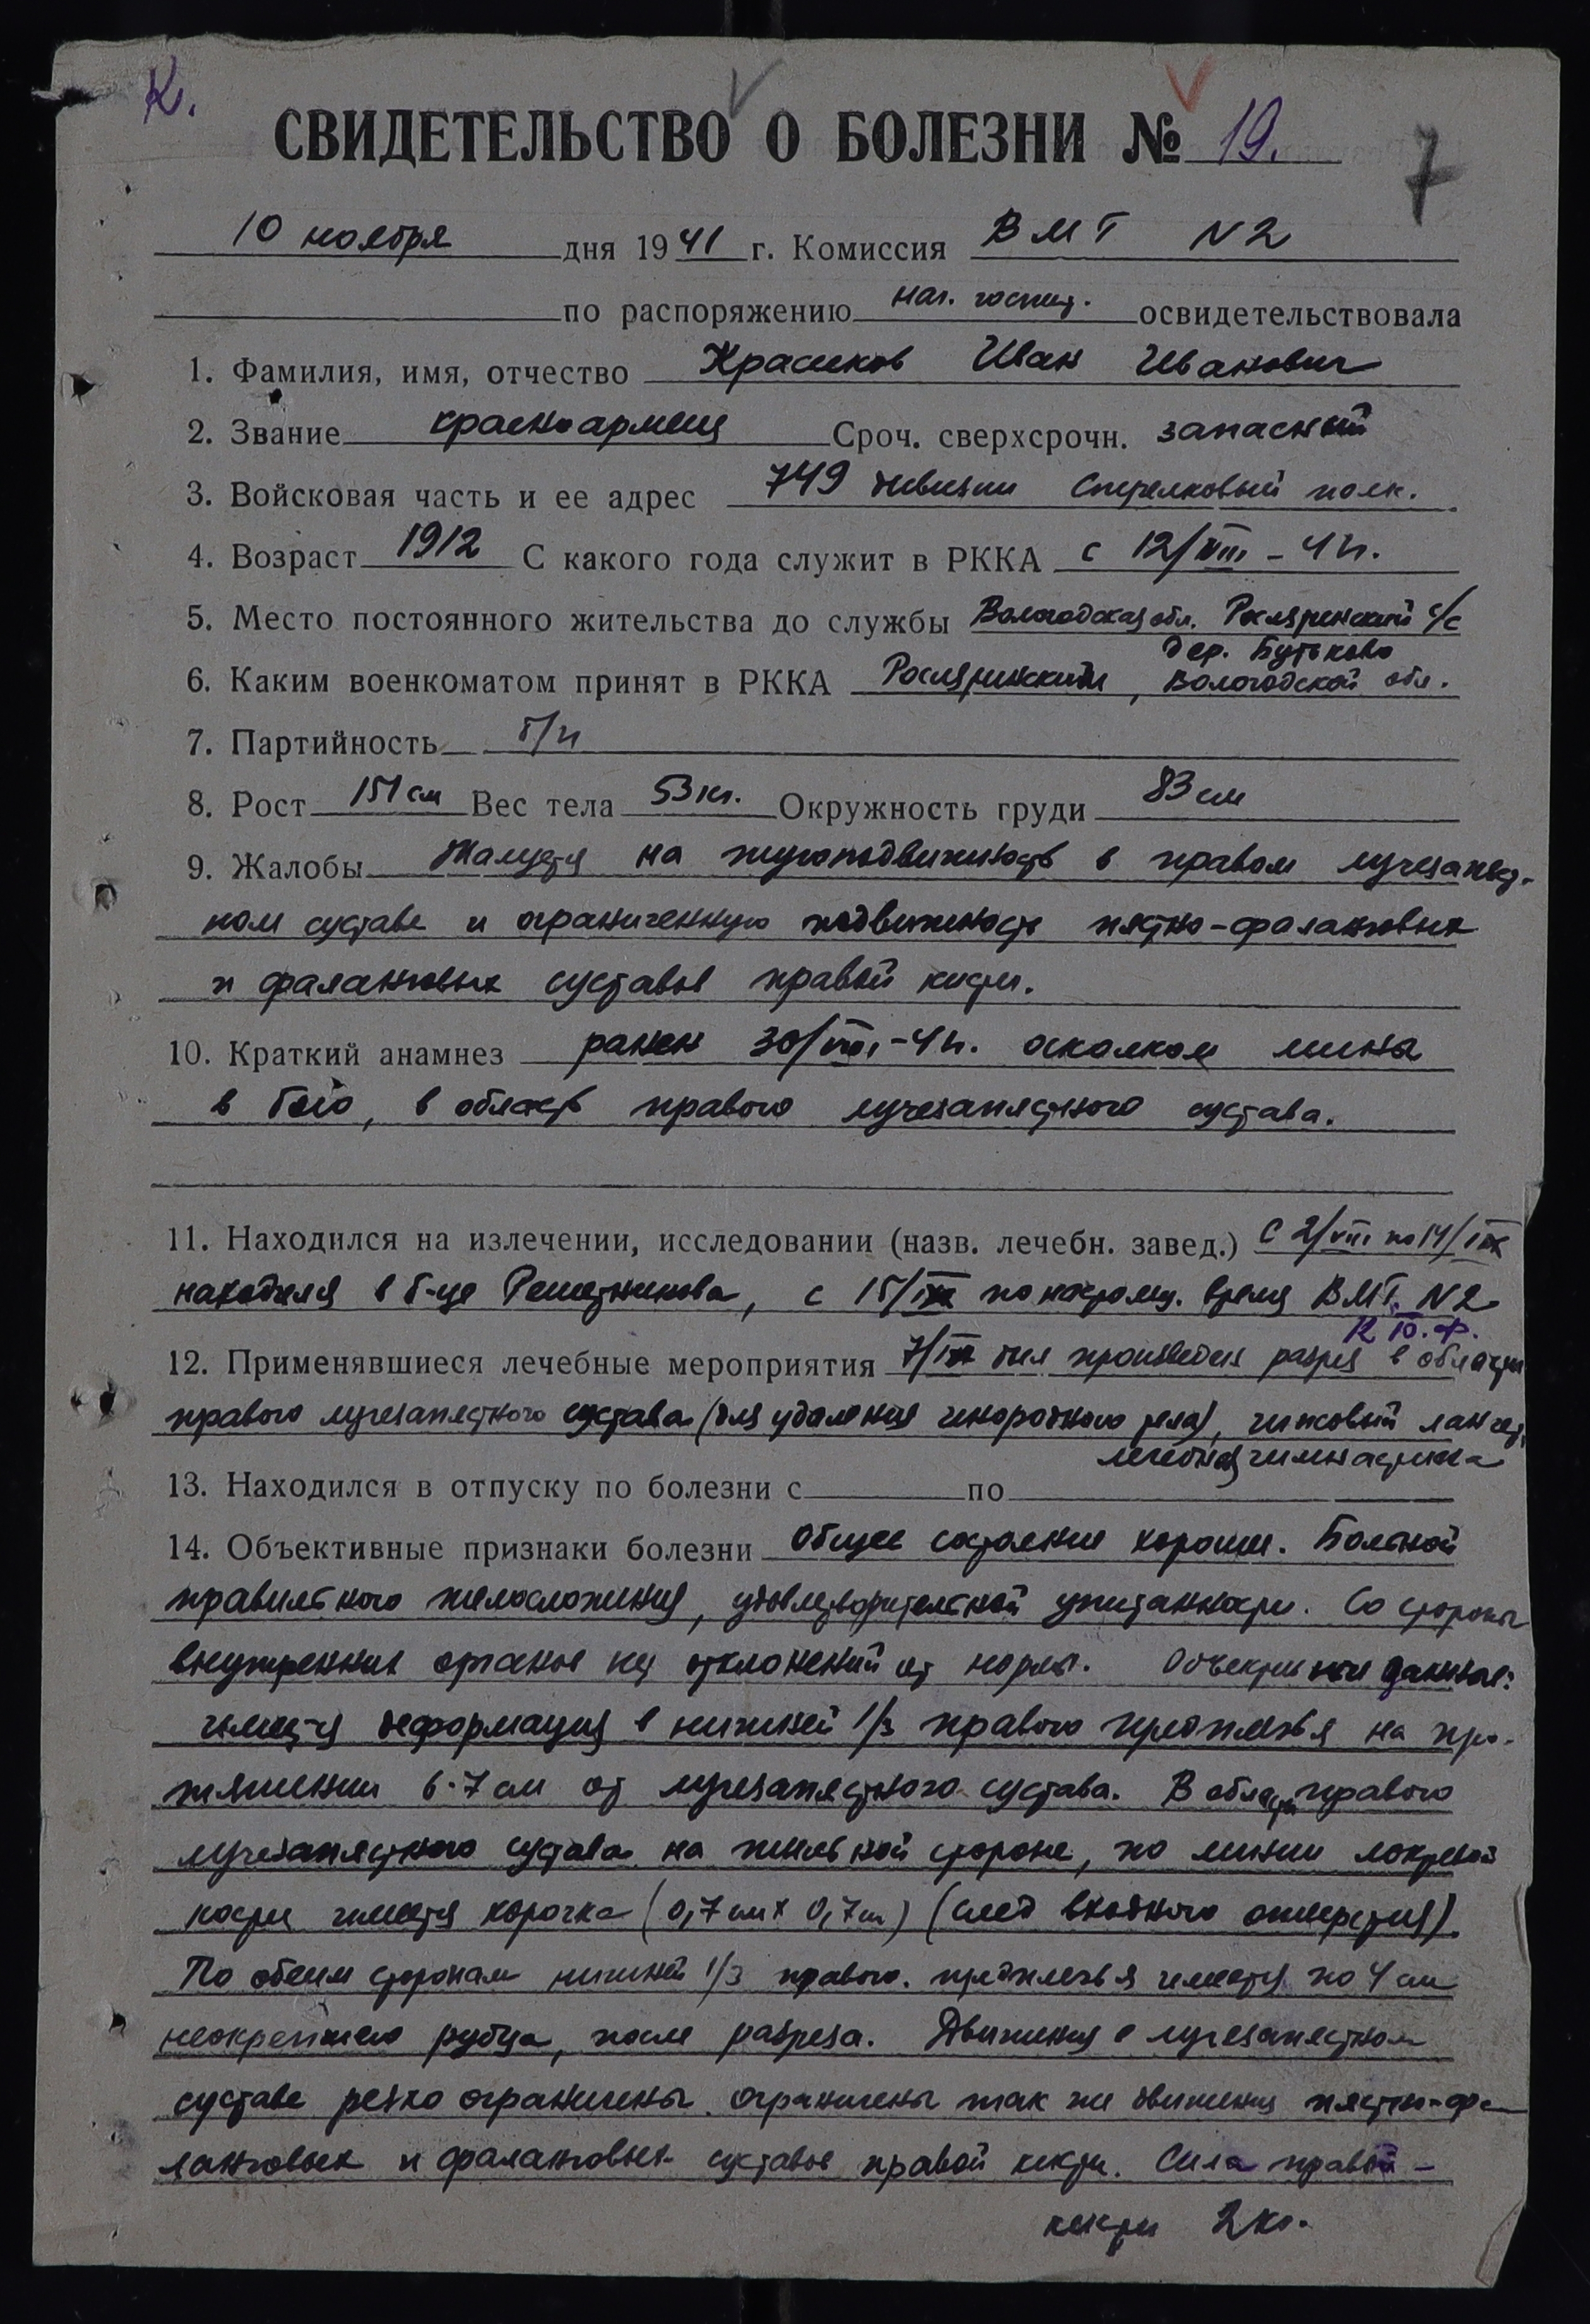 К.
СВИДЕТЕЛЬСТВО О БОЛЕЗНИ № 19.
7
10 ноября дня 1941 г. Комиссия ВМГ N2
по распоряжению нач. госпит. освидетельствовала
1. Фамилия, имя, отчество Красиков Иван Иванович
2. Звание красноармеец Сроч. сверхсрочн. запасной
3. Войсковая часть и ее адрес 749 дивизии Стрелковый полк.
4. Возраст 1912 С какого года служит в РККА с 12/VIII - 41.
5. Место постоянного жительства до службы Вологодская обл. Рослятинский с/с
дер. Бутьково
6. Каким военкоматом принят в РККА Рослятинским, Вологодской обл.
7. Партийность б/п
8. Рост 151 см Вес тела 53 кг. Окружность груди 83 см
9. Жалобы Жалуется на тугоподвижность в правом лучезапяст-
ном суставе и ограниченную подвижность пястно-фаланговых
и фаланговых суставов правой кисти.
10. Краткий анамнез ранен 30/VIII-41. осколком мины
в бою, в область правого лучезапястного сустава.
11. Находился на излечении, исследовании (назв. лечебн. завед.) с 2/VIII по 14/IX
находился в б-це Решетникова, с 15/IX по настоящ. время ВМГ N2
12. Применявшиеся лечебные мероприятия 7/IX был произведен разрез в области
правого лучезапястного сустава (для удаления инородного тела), гипсовый лангет,
лечебная гимнастика
13. Находился в отпуску по болезни с по
14. Объективные признаки болезни Общее состояние хорошее. Больной
правильного телосложения, удовлетворительной упитанности. Со стороны
внутренних органов нет отклонений от нормы. Объективные данные:
имеется деформация в нижней 1/3 правого предплечья на про-
тяжении 6-7 см от лучезапястного сустава. В области правого
лучезапястного сустава на тыльной стороне, по линии локтевой
кости имеется корочка (0,7 см х 0,7 см) (след входного отверстия).
По обеим сторонам нижней 1/3 правого. предплечья имеется по 4 см
неокрепшего рубца, после разреза. Движения в лучезапястном
суставе резко ограничены. ограничены так же движения пястно-фа-
ланговых и фаланговых суставов правой кисти. Сила правой -
кисти 2 кг.